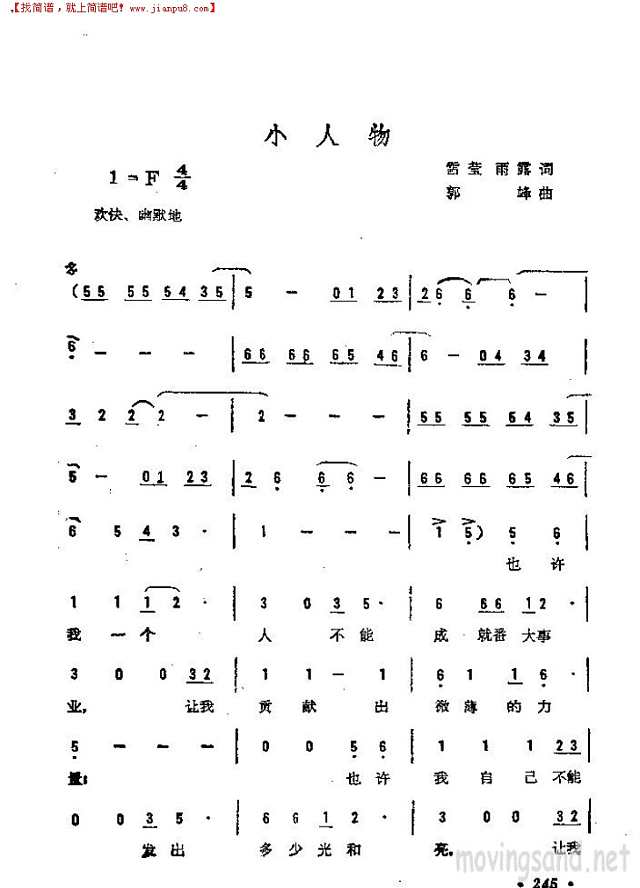 【找简谱，就上简谱吧! www.jianpu8.com】
小人物
1=F 4/4
雨露词
郭峰曲
欢快、幽默地
(55 55 54 35 | 5 - 01 23 | 26 6 6 -
6 - - - | 66 66 65 46 | 6 - 04 34
3 2 2 2 - - | 2 - - - | 55 55 54 35
5 - 01 23 | 26 6 6 6 - | 66 66 65 46
6 5 4 3 · | 1 - - - | 1 5) 5 6
也许
1 1 1 2 · | 3 0 3 5 · | 6 66 1 2 ·
我一个 人 不能 成就番大事
3 0 0 32 | 1 1 - 1 | 6 1 1 6 ·
业，让我 贡献出 微薄的力
5 - - - | 0 0 5 6 | 1 1 1 23
量；也许 我自己不能
0 0 3 5 · | 6 6 1 2 · | 3 0 0 32
发出 多少光和 亮，让我
movingsand.net
· 245 ·